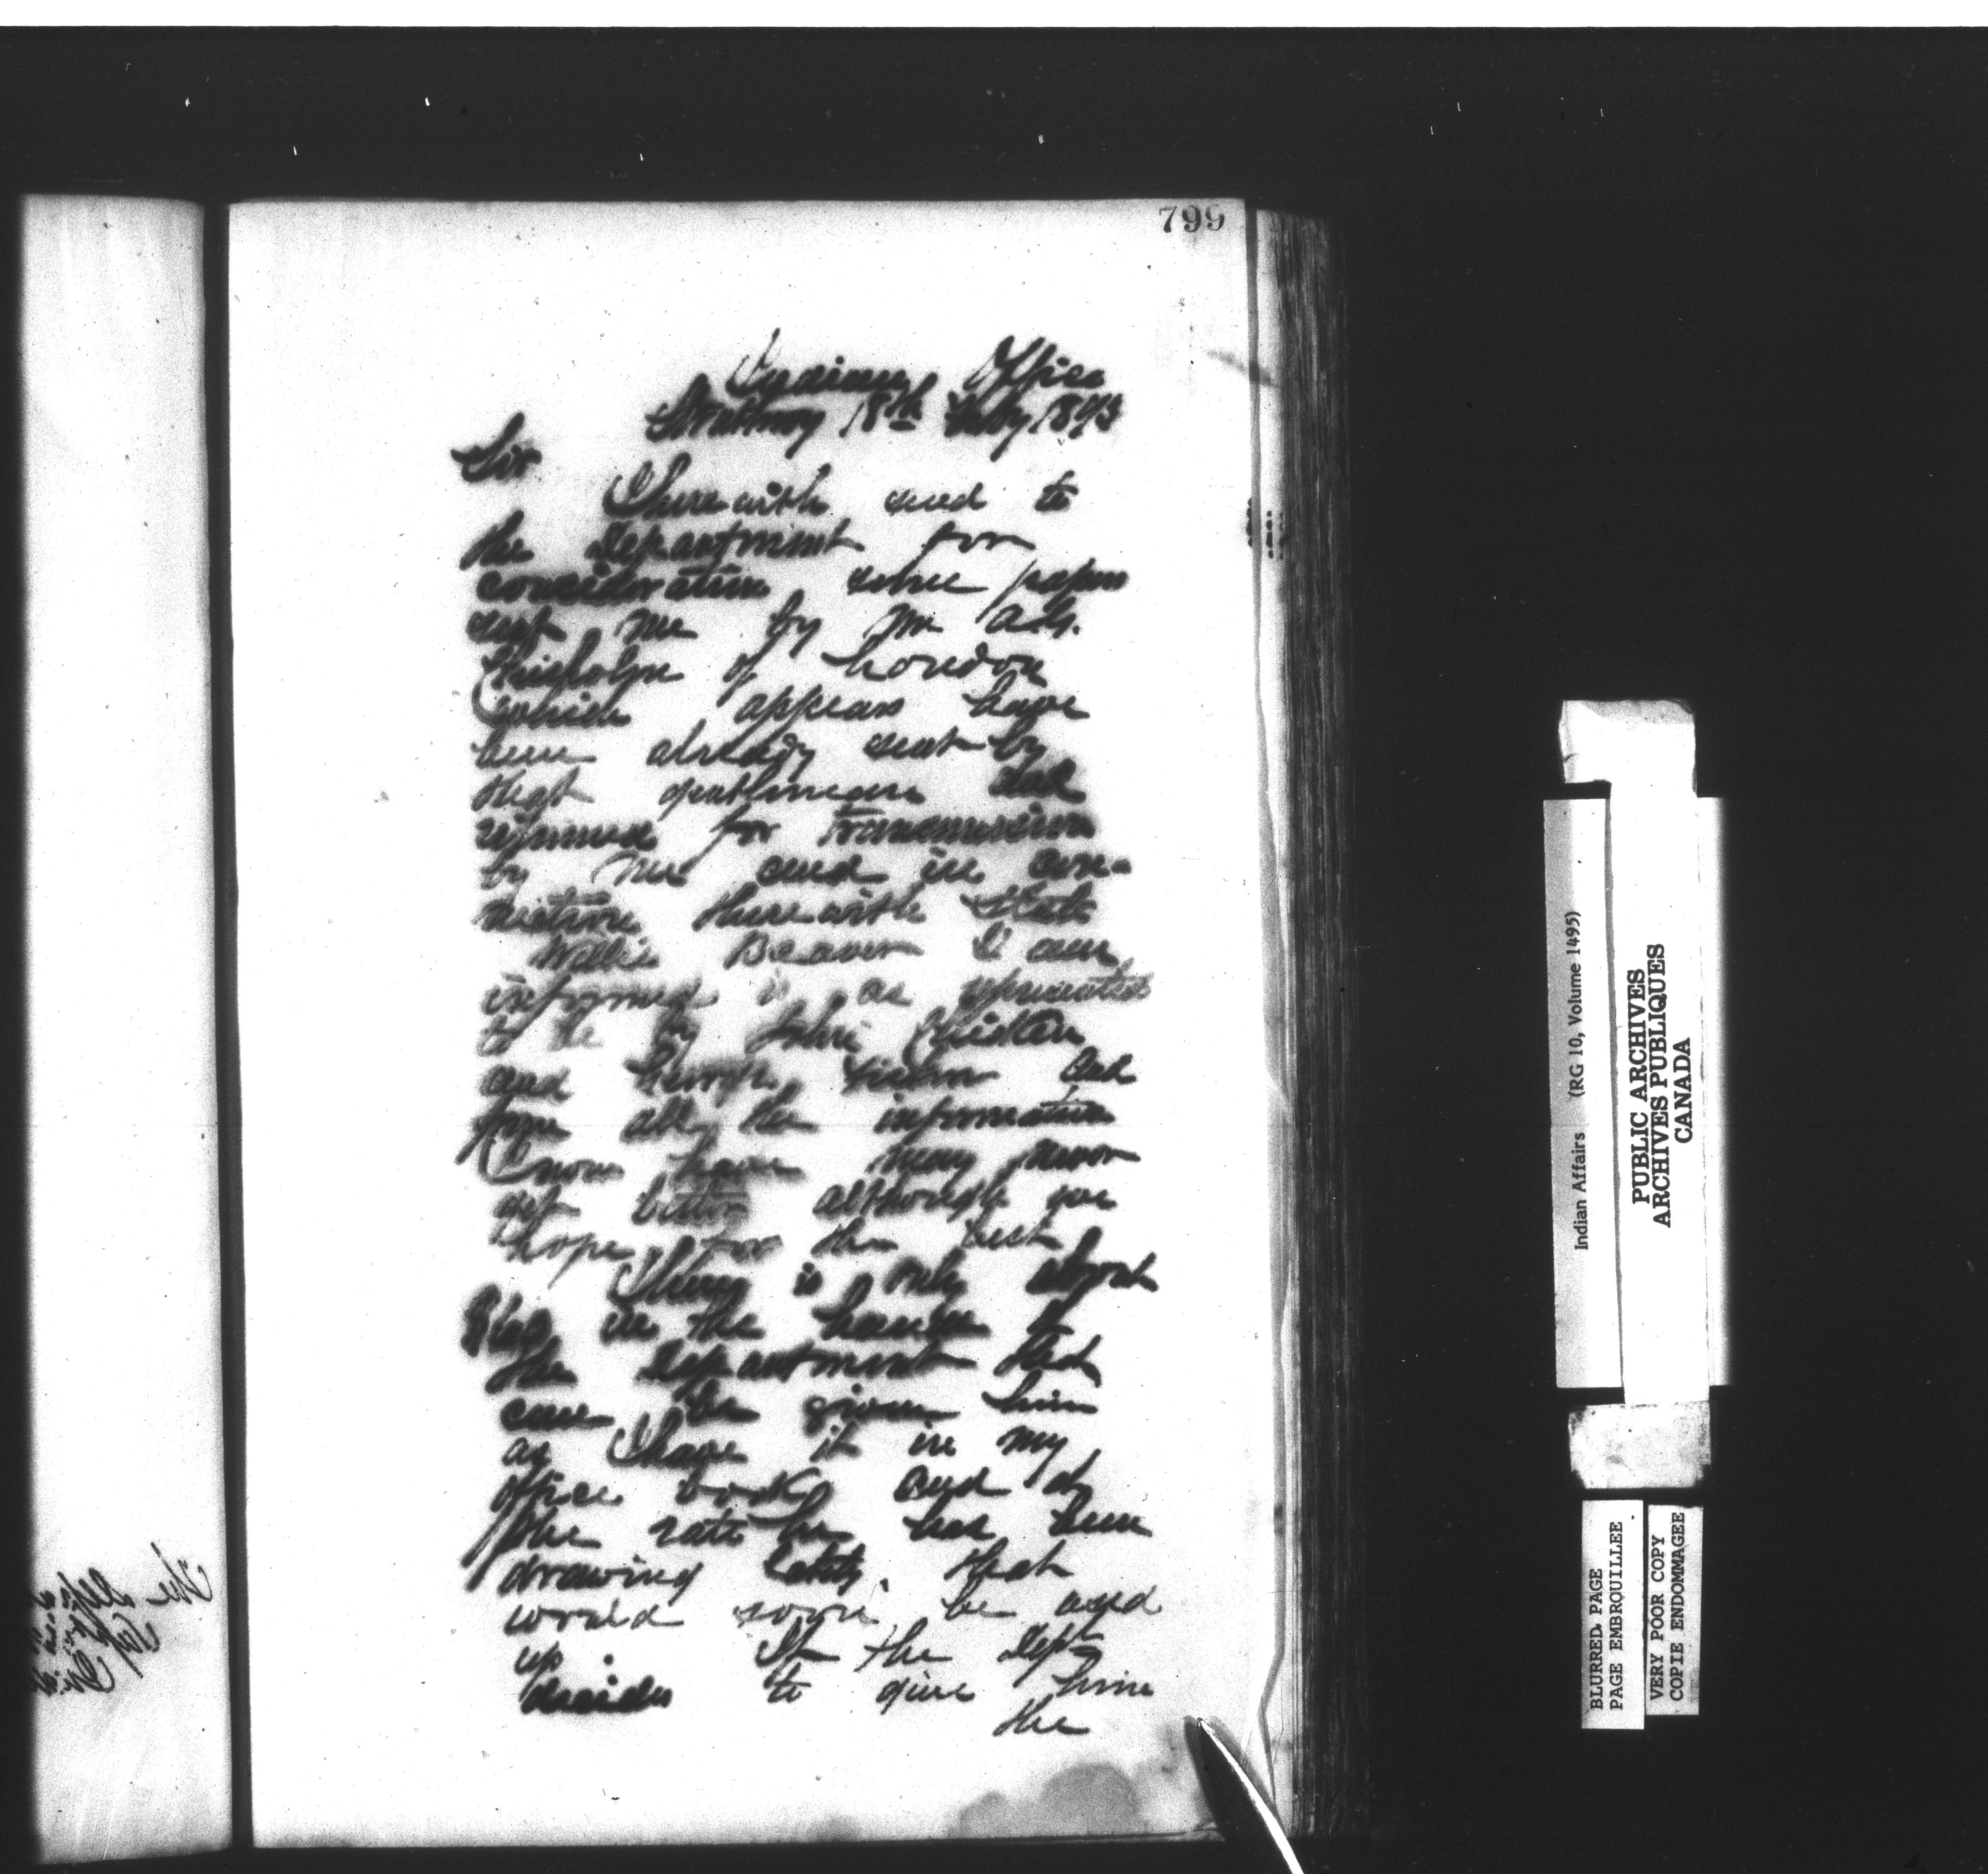 799
Indian Office
Strathroy 18th July 1893
Sir
I herewith send to
the Department for
consideration some papers
sent me by Mr A.G.
Chisholm of London
which appears have
been already sent by
that gentleman and
returned for transmission
by me and in con-
nection therewith state
Willie Beaver I am
informed is as represented
to be by John
and and
from all the information
I now have may never
get better although we
hope for the best
There is only about
in the hands of
the Department that
can be given him
as I have it in my
office books and at
the rate he has been
drawing lately that
would soon be used
up. If the Dept
decides to give him
the
Indian Affairs (RG 10, Volume 1495)
PUBLIC ARCHIVES
ARCHIVES PUBLIQUES
CANADA
BLURRED PAGE
PAGE EMBROUILLEE
VERY POOR COPY
COPIE ENDOMMAGEE